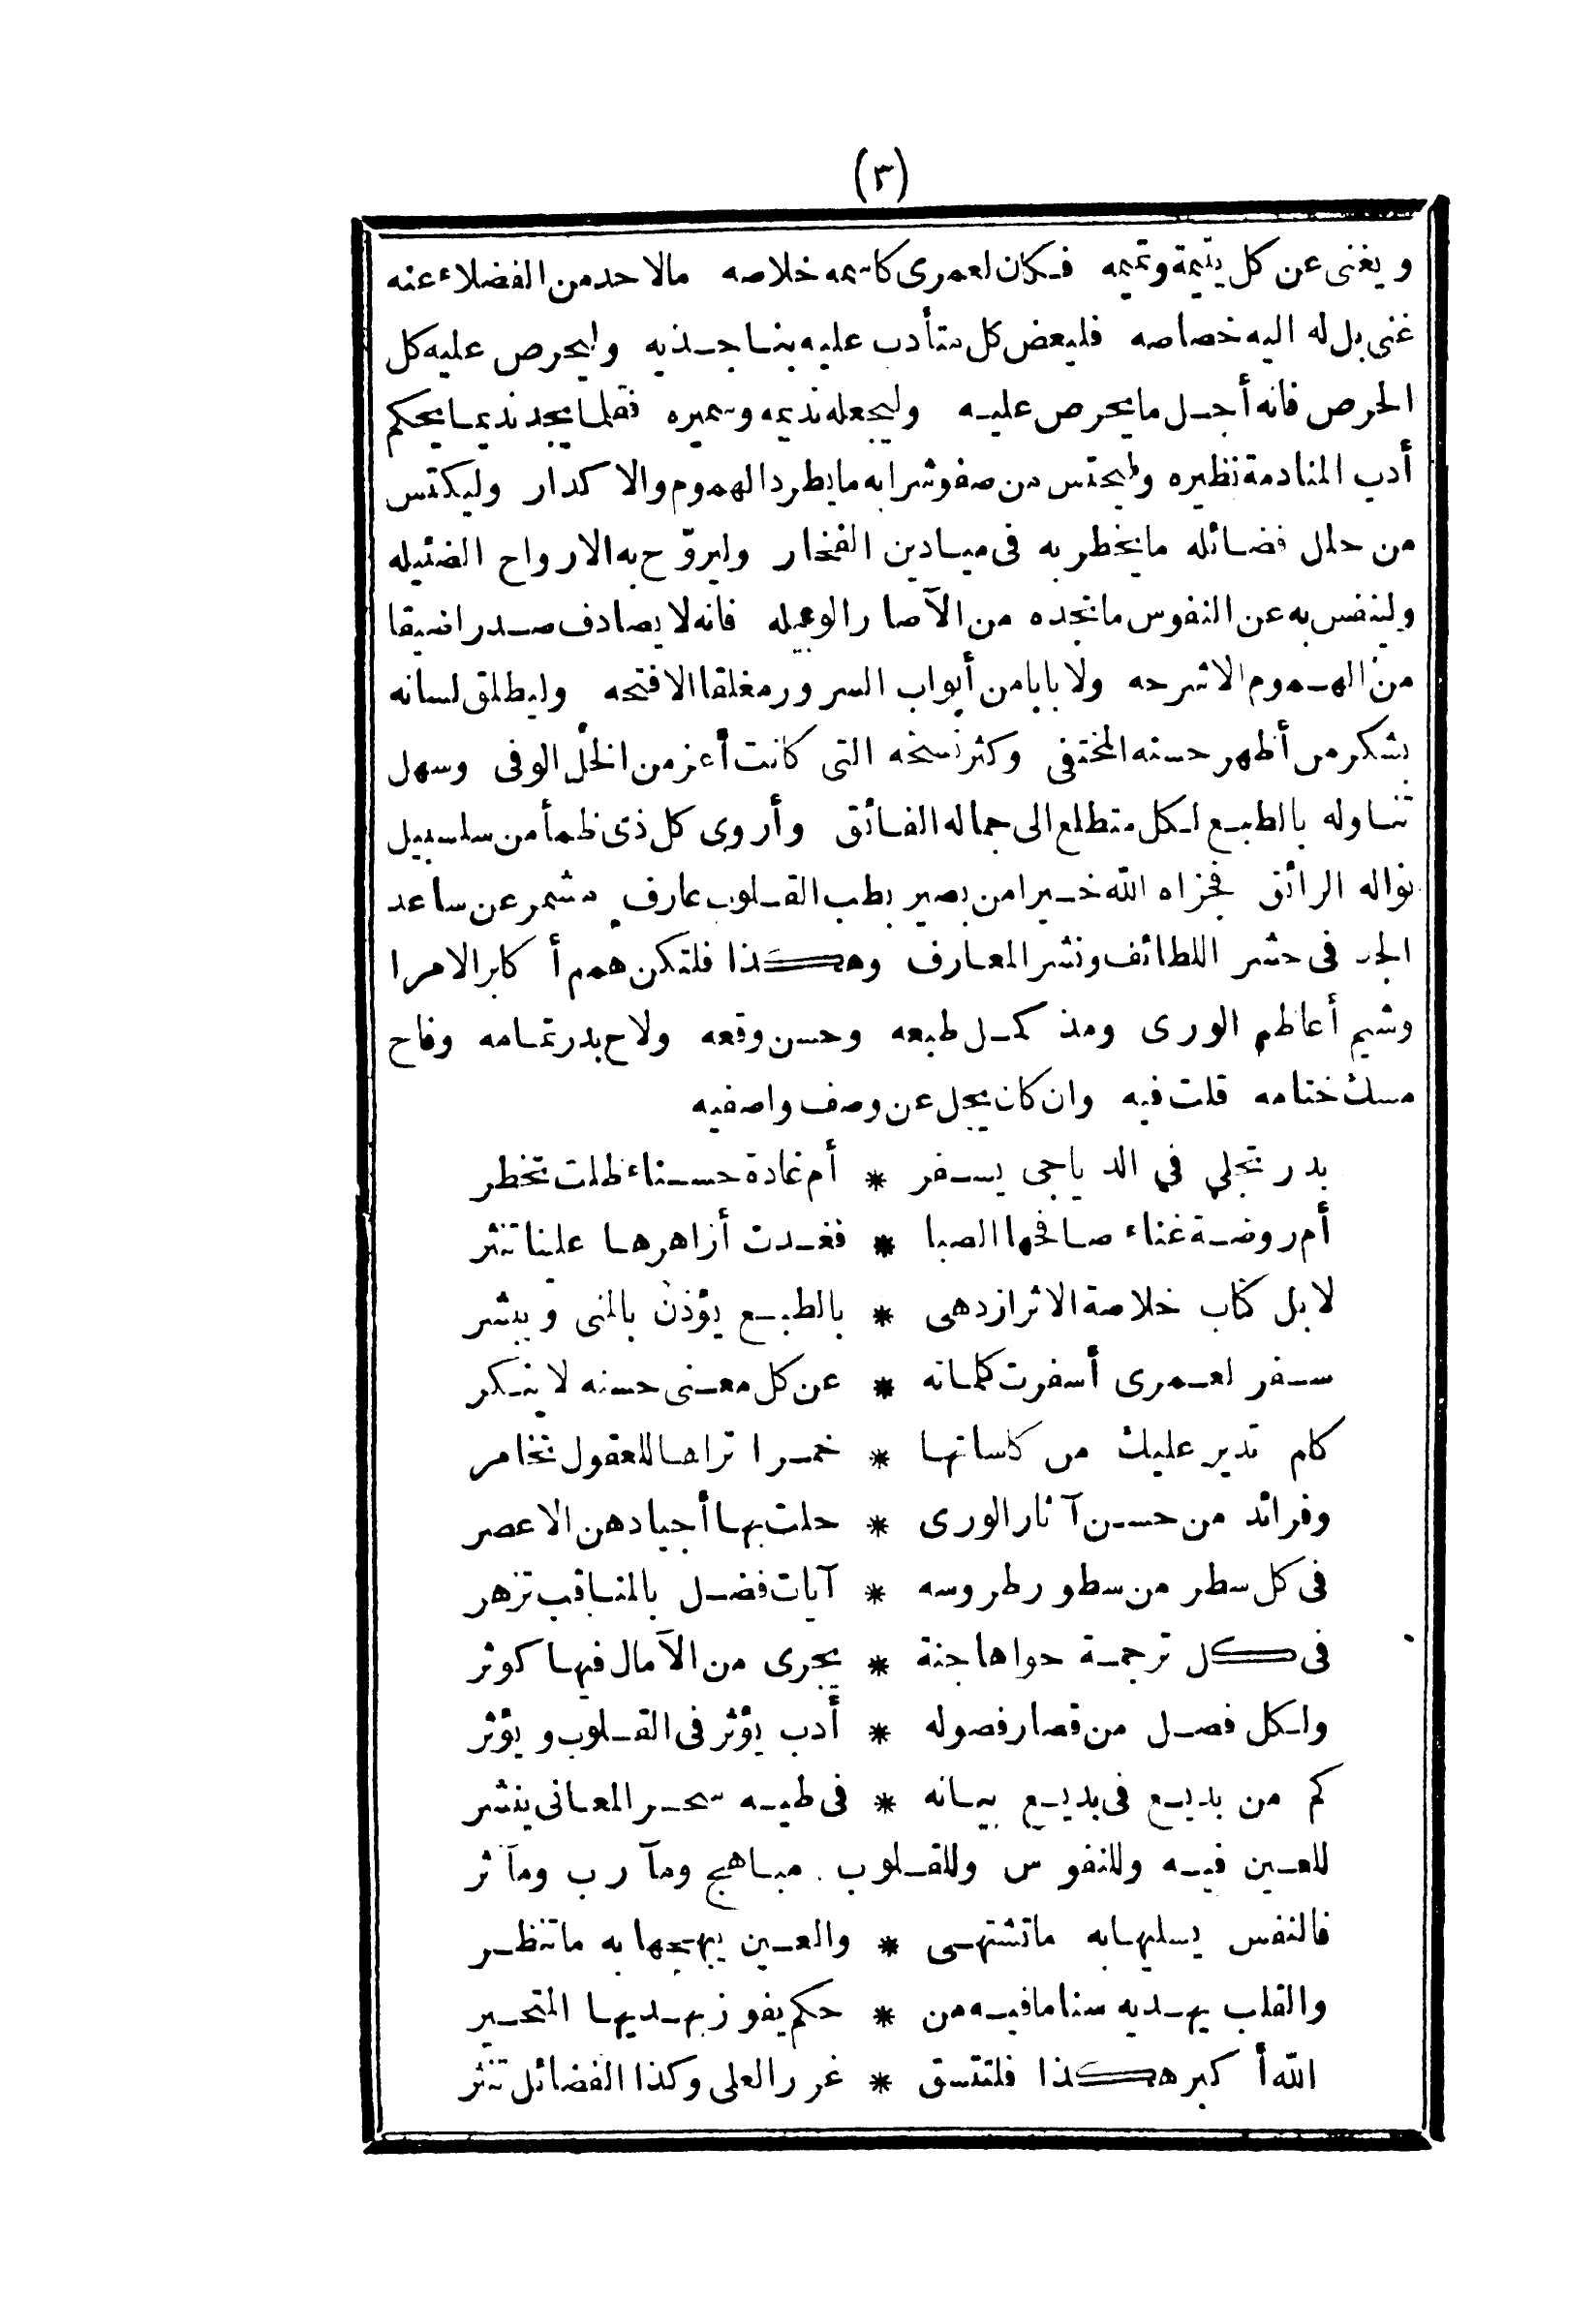 (٣)
ويغنى عن كل يتيمة وتميمه فكان لعمرى كاسمه خلاصه مالاحد من الفضلاء عنه
غنى بل له اليه خصاصه فليعض كل متأدب عليه بناجذيه وليحرص عليه كل
الحرص فانه أجل ما يحرص عليه وليجعله نديمه وسميره فقلما يجد نديما يحكم
أدب المنادمة نظيره وليحتس من صفو شرابه ما يطرد الهموم والاكدار وليكتس
من حلل فضائله ما يخطر به فى ميادين الفخار وليروّح به الارواح الضئيله
ولينفس به عن النفوس ما تجده من الآصار الوبيله فانه لا يصادف صدرا ضيقا
من الهموم الاشرحه ولا بابا من أبواب السرور مغلقا الافتحه وليطلق لسانه
بشكر من أظهر حسنه المختفى وكثر نسخه التى كانت أعز من الخل الوفى وسهل
تناوله بالطبع لكل متطلع الى جماله الفائق وأروى كل ذى ظمأ من سلسبيل
نواله الرائق فجزاه الله خيرا من بصير بطب القلوب عارف مشمر عن ساعد
الجد فى حشر اللطائف ونشر المعارف وهكذا فلتكن همم أكابر الامرا
وشيم أعاظم الورى ومذ كمل طبعه وحسن وقعه ولاح بدر تمامه وفاح
مسك ختامه قلت فيه وان كان يجل عن وصف واصفيه
بدر تجلى في الدياجى يسفر * أم غادة حسناء ظلت تخطر
أم روضة غناء صافحها الصبا * فغدت أزاهرها علينا تنثر
لا بل كتاب خلاصة الاثر ازدهى * بالطبع يؤذن بالمنى ويبشر
سفر لعمرى أسفرت كلماته * عن كل معنى حسنه لا ينكر
كلم تدير عليك من كاساتها * خمرا تراها للعقول تخامر
وفرائد من حسن آثار الورى * حلت بها أجيادهن الاعصر
فى كل سطر من سطور طروسه * آيات فضل بالمناقب تزهر
فى كل ترجمة حواها جنة * يجرى من الآمال فيها كوثر
ولكل فصل من قصار فصوله * أدب يؤثر فى القلوب ويؤثر
كم من بديع فى بديع بيانه * فى طيه سحر المعانى ينشر
للعين فيه وللنفوس وللقلوب مباهج ومآرب ومآثر
فالنفس يسليها به ما تشتهى * والعين يبهجها به ما تنظر
والقلب يهديه سنا ما فيه من * حكم يفوز بهديها المتحير
الله أكبر هكذا فلتتسق * غرر العلى وكذا الفضائل تنثر